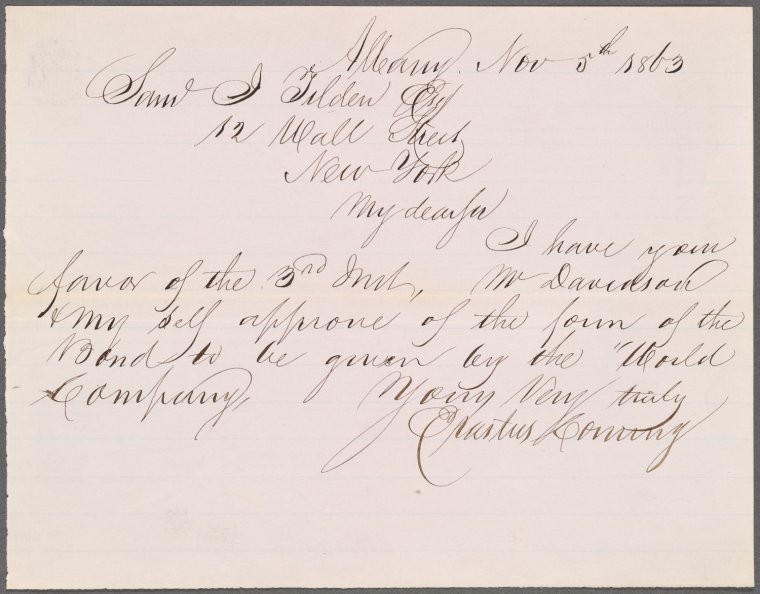 Albany. Nov 5th 1863
Saml J Tilden Esq
12 Wall Street
New York
My dear sir
I have your
favor of the 3rd Inst, Mr Davidson
& my self approve of the form of the
Bond to be given by the "World
Company, Yours Very truly
Erastus Corning